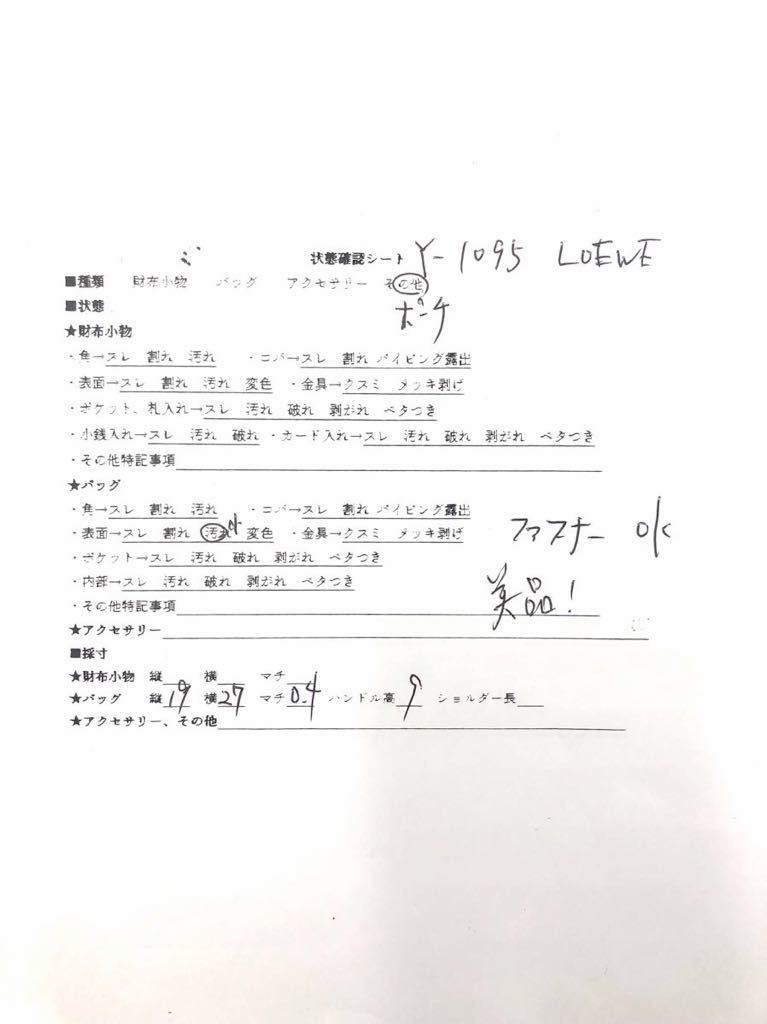 状態確認シート Y-1095 LOEWE
■種類 財布小物 バッグ アクセサリー その他
■状態 ポーチ
★財布小物
・角→スレ 割れ 汚れ ・コバ→スレ 割れ パイピング露出
・表面→スレ 割れ 汚れ 変色 ・金具→クスミ メッキ剥げ
・ポケット、札入れ→スレ 汚れ 破れ 剥がれ ベタつき
・小銭入れ→スレ 汚れ 破れ ・カード入れ→スレ 汚れ 破れ 剥がれ ベタつき
・その他特記事項
★バッグ
・角→スレ 割れ 汚れ ・コバ→スレ 割れ パイピング露出
・表面→スレ 割れ 汚れ 小 変色 ・金具→クスミ メッキ剥げ ファスナー OK
・ポケット→スレ 汚れ 破れ 剥がれ ベタつき
・内部→スレ 汚れ 破れ 剥がれ ベタつき
・その他特記事項 美品!
★アクセサリー
■採寸
★財布小物 縦 横 マチ
★バッグ 縦19 横27 マチ0.4 ハンドル高9 ショルダー長
★アクセサリー、その他